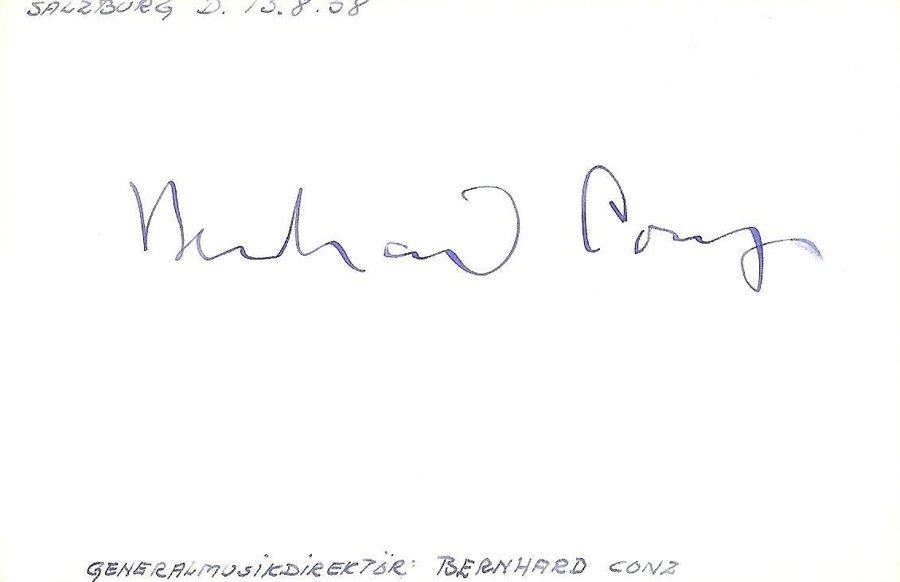 SALZBURG D. 13.8.58
Bernhard Conz
GENERALMUSIKDIREKTÖR: BERNHARD CONZ